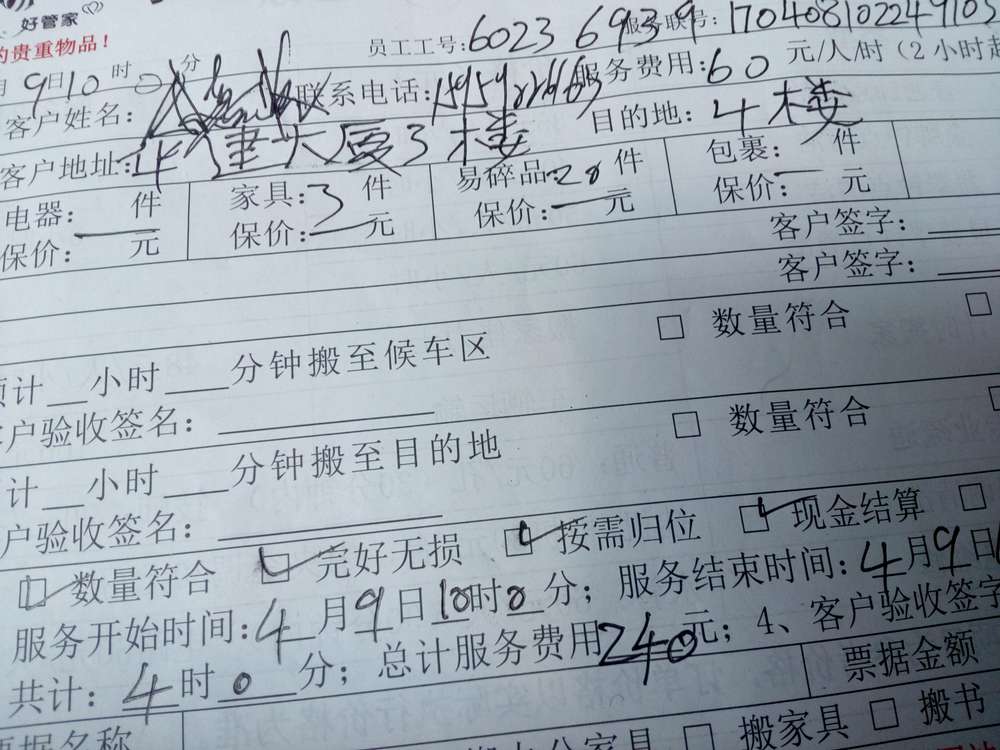 好管家
的贵重物品！
员工工号: 6023 6939 服务联号: 170408102249105
月9日10时 分
客户姓名: 联系电话: 服务费用: 60 元/人/时（2小时起
客户地址: 华建大厦3楼 目的地: 4楼
电器: — 件 家具: 3 件 易碎品: 20 件 包裹: — 件
保价: — 元 保价: — 元 保价: — 元 保价: — 元
客户签字:
客户签字:
预计__小时___分钟搬至候车区 □ 数量符合 □
客户验收签名: □ 数量符合
计__小时___分钟搬至目的地
户验收签名:
☑ 数量符合 ☑ 完好无损 ☑ 按需归位 ☑ 现金结算 □
服务开始时间: 4月9日10时0分; 服务结束时间: 4月9日
共计: 4时0分; 总计服务费用240元; 4、客户验收签字
票据金额
票据名称 □ 搬家具 □ 搬书